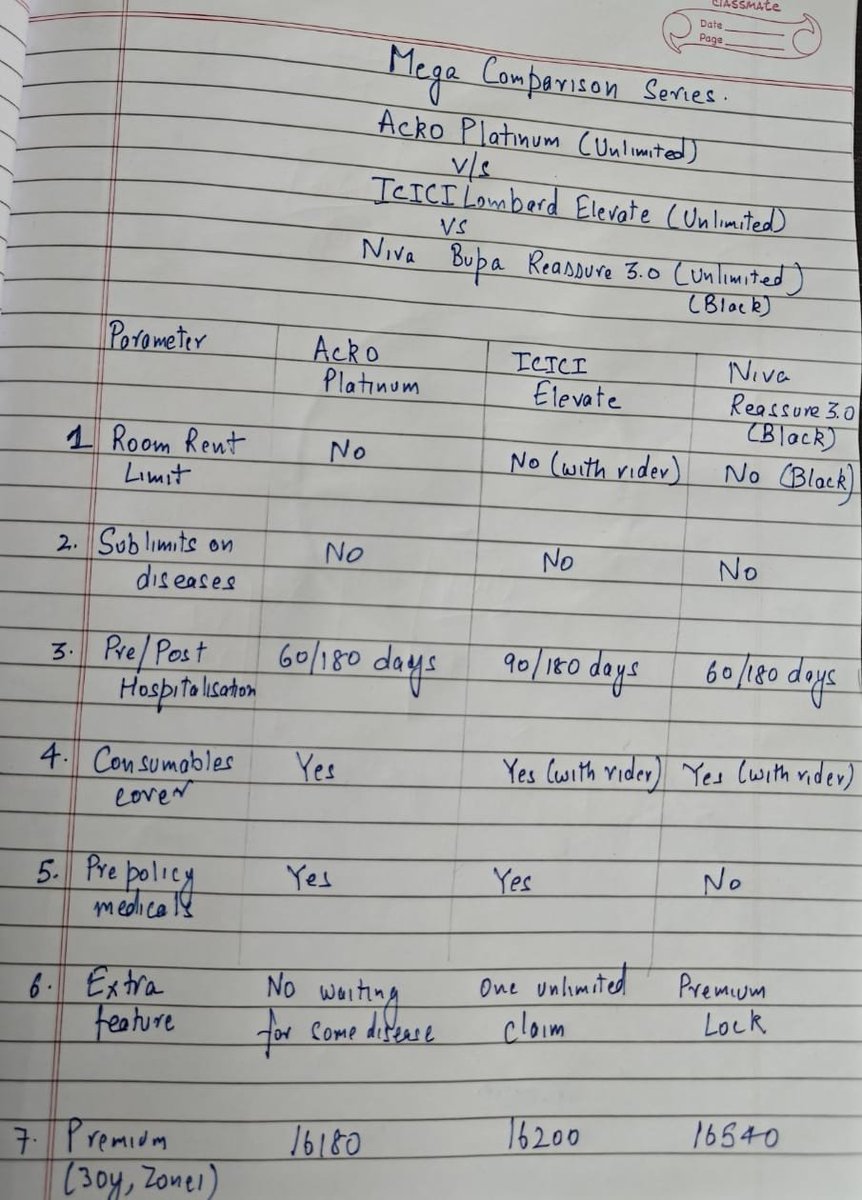 CLASSMATE
Date
Page
Mega Comparison Series.
Acko Platinum (Unlimited)
V/s
ICICI Lombard Elevate (Unlimited)
VS
Niva Bupa Reassure 3.0 (Unlimited)
(Black)
Parameter Acko Platinum ICICI Elevate Niva Reassure 3.0 (Black)
1 Room Rent Limit No No (with rider) No (Black)
2. Sublimits on diseases No No No
3. Pre/Post Hospitalisation 60/180 days 90/180 days 60/180 days
4. Consumables cover Yes Yes (with rider) Yes (with rider)
5. Pre policy medicals Yes Yes No
6. Extra feature No waiting for some disease One unlimited claim Premium Lock
7. Premium (30y, Zone1) 16180 16200 16540